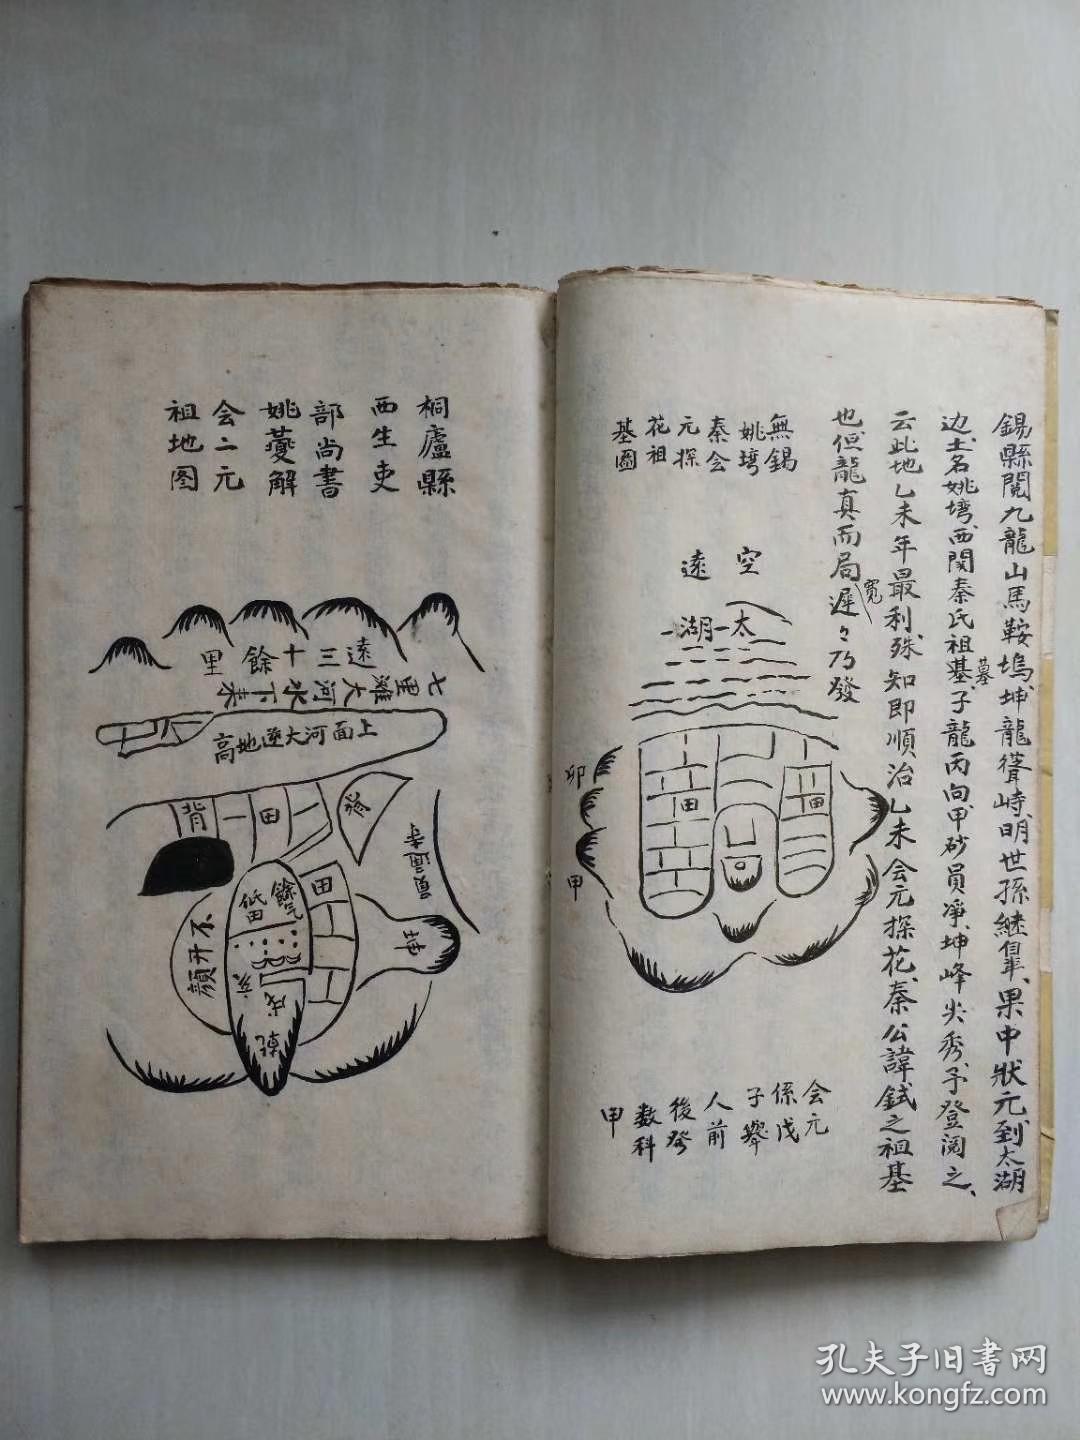 錫縣閱九龍山馬鞍塢坤龍聳峙明世孫繼皐果中狀元到太湖
边土名姚塆西関秦氏祖基墓子龍丙向甲砂員凈坤峰尖秀予登阅之
云此地乙未年最利殊知即順治乙未会元探花秦公諱鉽之祖基
也但龍真而局寬遲々乃發
無錫
姚塆
秦会
元探
花祖
基圖
空遠
太湖
卯
甲
田
田
会元
係戊
子舉
人前
後發
数科
甲
桐廬縣
西生吏
部尚書
姚夔解
会二元
祖地图
遠三十餘里
七里灘大河水下来
上面河大逆地高
背
田
田
餘气
低田
不开顔
坤
亥
戌
乾